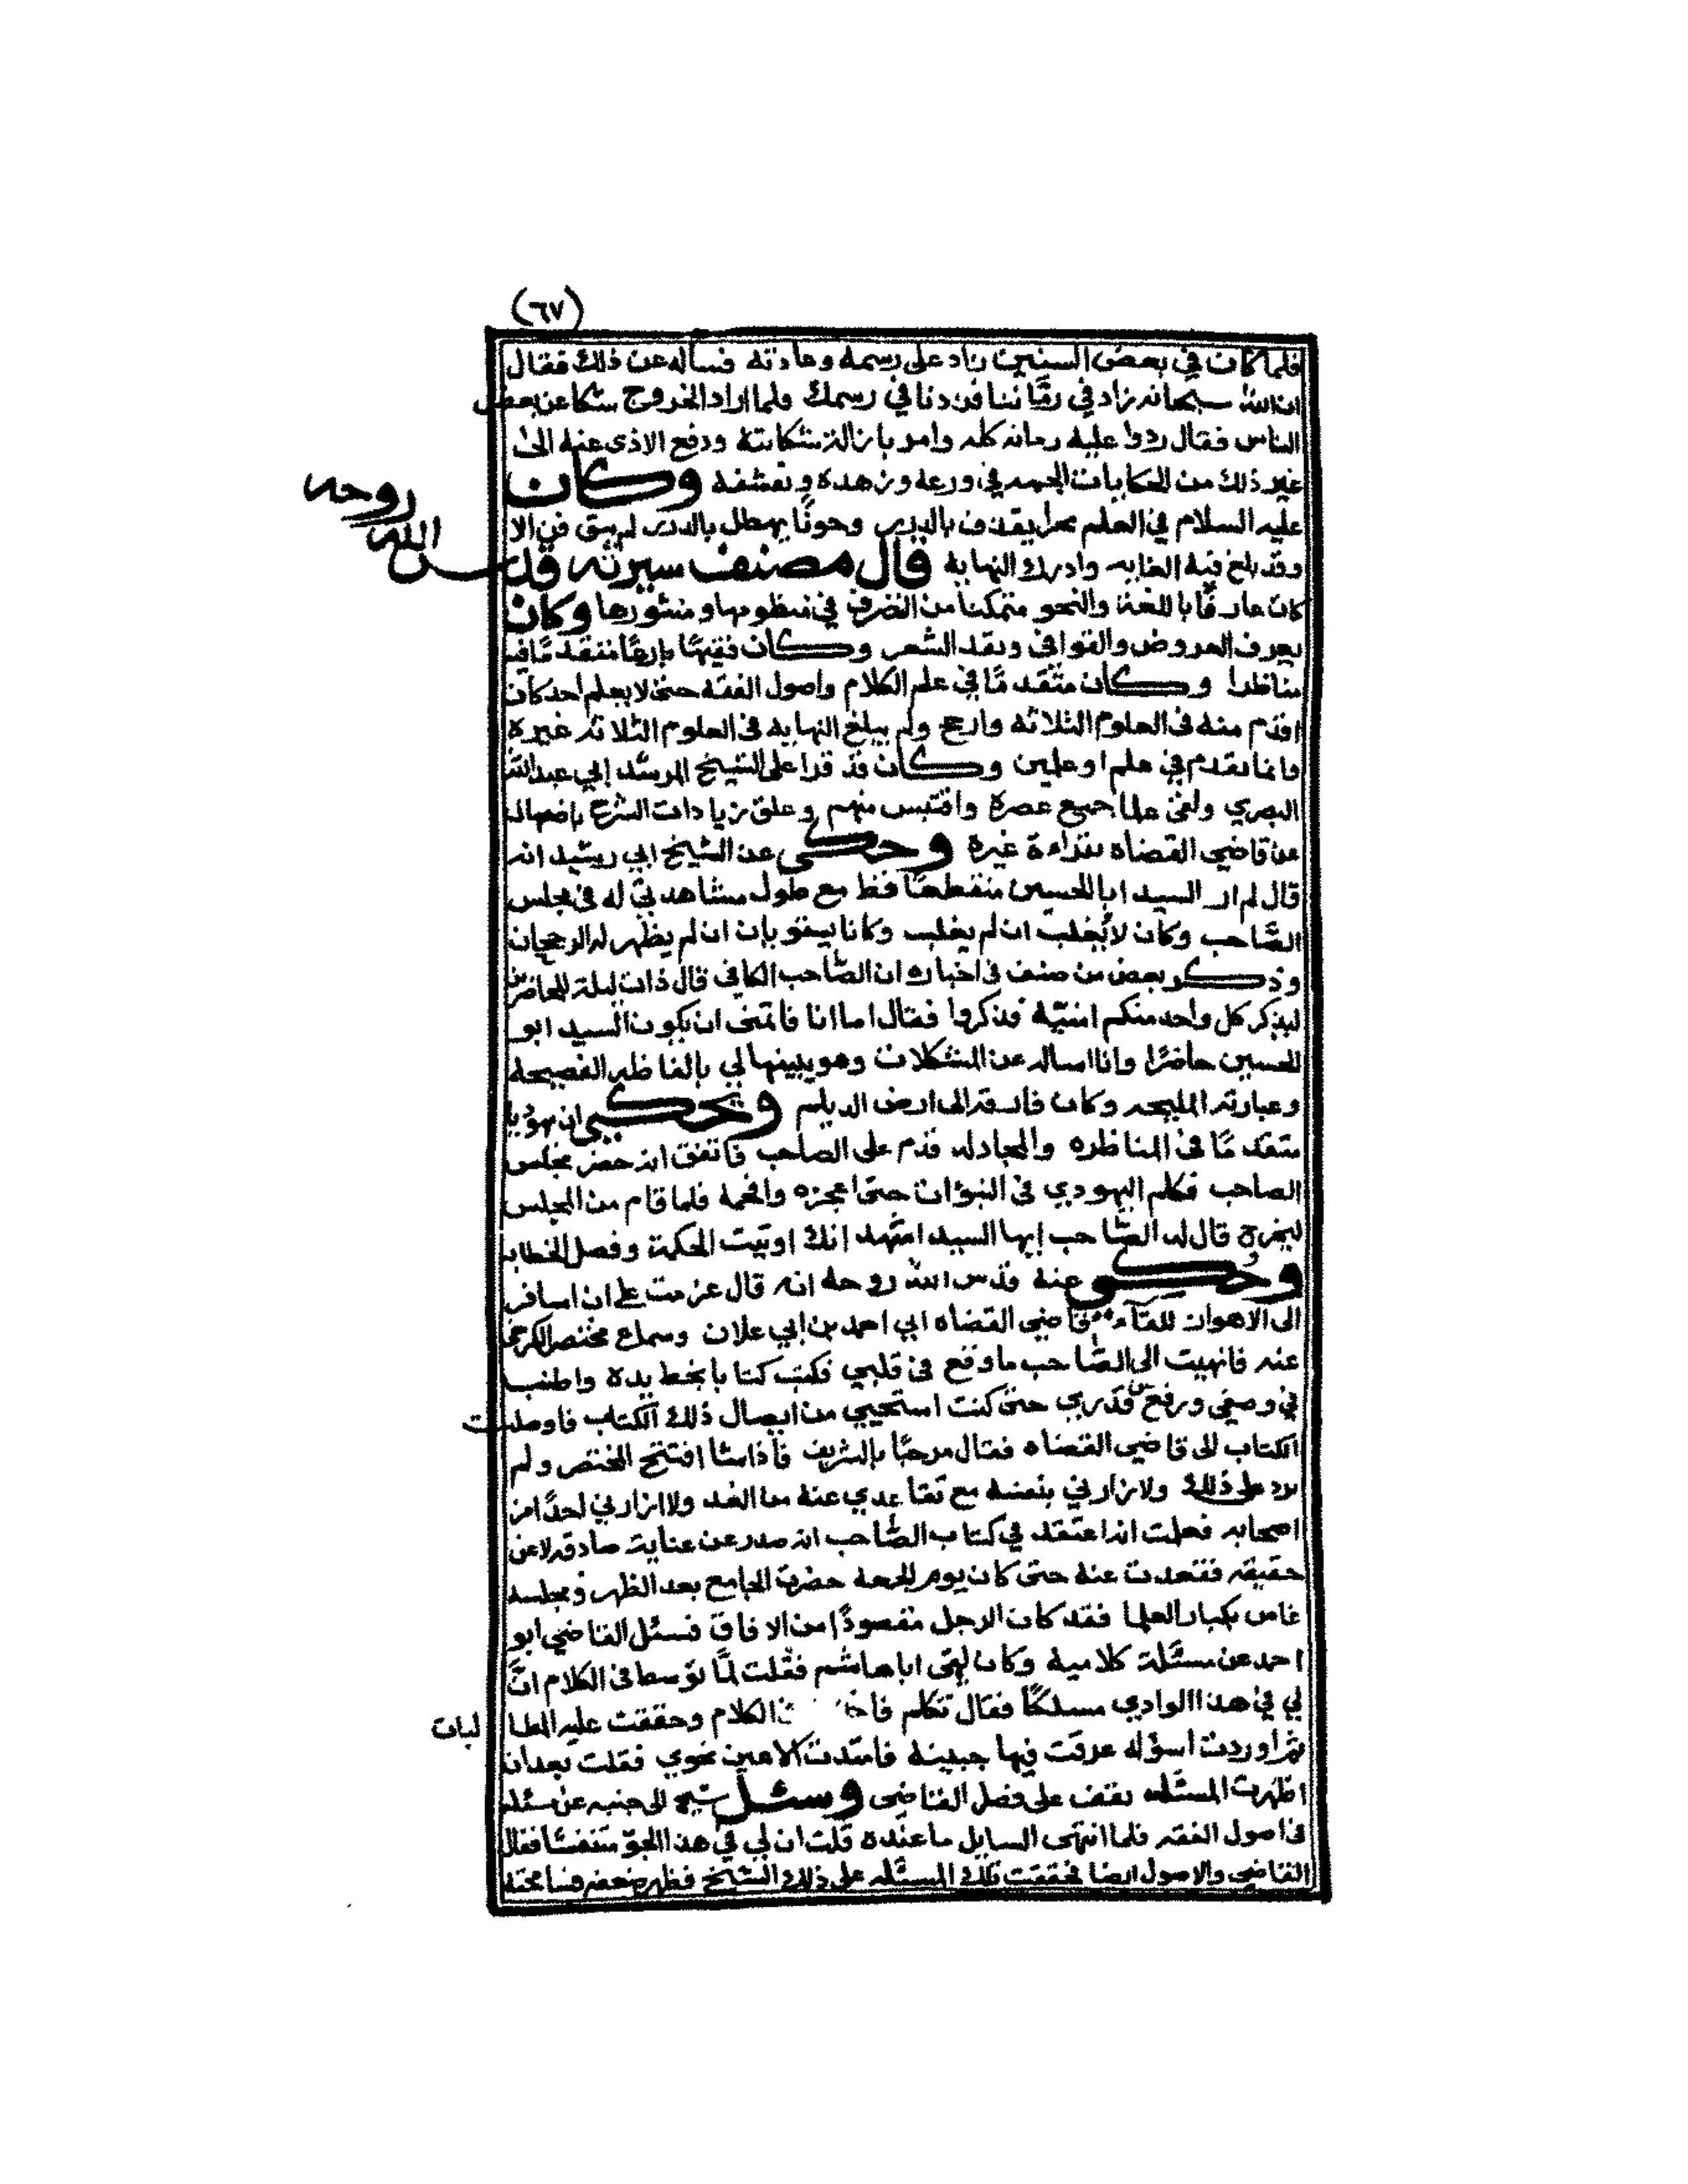 (٦٧)
فلما كان في بعض السنين زاد على رسمه وعادته فسأله عن ذلك فقال
ان الله سبحانه زاد في رماننا فزدنا في رسمك ولما اراد الخروج شكا عن بعض
الناس فقال ردوا عليه رمانه كله وامر بازالة شكايته ودفع الاذى عنه الى
غير ذلك من الحكايات الجمه في ورعه وزهده وتقشفه وكان
عليه السلام في العلم بحرا يقذف بالدرر وجونًا يهطل بالدرر لم يبق فن الا
وقد بلغ فيه الغايه وادرك النهاية قال مصنف سيرته قدس الله روحه
كان عارفًا باللغة والنحو متمكنا من التصرف في منظومها ومنثورها وكان
يعرف العروض والقوافي ونقد الشعر وكان فقيهًا بارعًا متقدمًا فيه
مناظرا وكان متقدمًا في علم الكلام واصول الفقه حتى لا يعلم احد كان
اقدم منه في العلوم الثلاثه وارجح ولم يبلغ النهايه في العلوم الثلاثه غيره
وانما تقدم في علم او علمين وكان قد قرا على الشيخ المرشد ابي عبدالله
البصري ولقي علما جميع عصره واقتبس منهم وعلق زيادات الشرح باصفهان
عن قاضي القضاه بقراءة غيره وحكى عن الشيخ ابي رشيد انه
قال لم ار السيد ابا الحسين منقطعًا قط مع طول مشاهدتي له في مجلس
الصَّاحب وكان لا يُغلب ان لم يغلب وكانا يستويان ان لم يظهر له الرجحان
وذكر بعض من صنف في اخباره ان الصَّاحب الكافي قال ذات ليلة للحاضرين
ليذكر كل واحد منكم امنيته فذكروا فقال اما انا فاتمنى ان يكون السيد ابو
الحسين حاضرًا وانا اساله عن المشكلات وهو يبينها لي بالفاظه الفصيحه
وعبارته المليحه وكان فارقه الى ارض الديلم ويحكى ان يهوديا
متقدمًا في المناظره والمجادله قدم على الصاحب فاتفق انه حضر مجلس
الصاحب فكلم اليهودي في النبؤات حتى اعجزه وافحمه فلما قام من المجلس
ليخرج قال له الصَّاحب ايها السيد اشهد انك اوتيت الحكمة وفصل الخطاب
وحكى عنه قدس الله روحه انه قال عزمت على ان اسافر
الى الاهواز للقآء قاضي القضاه ابي احمد بن ابي علان وسماع مختصر الكرخي
عنه فانهيت الى الصَّاحب ما وقع في قلبي فكتب كتابا بخط يده واطنب
في وصفي ورفع من قدري حتى كنت استحيي من ايصال ذلك الكتاب فاوصلت
الكتاب الى قاضي القضاه فقال مرحبًا بالشريف فاذا شا افتتح المختصر ولم
يزد على ذلك ولا زارني بنفسه مع تقاعدي عنه من الغد ولا ازارني احدًا من
اصحابه فعلمت انه اعتقد في كتاب الصَّاحب انه صدر عن عناية صادقه لا عن
حقيقه فقعدت عنه حتى كان يوم الجمعه حضرت الجامع بعد الظهر ومجلسه
غاص بكبار العلما فقد كان الرجل مقصودًا من الافاق فسئل القاضي ابو
احمد عن مسئلة كلاميه وكان لقي ابا هاشم فقلت لمَّا توسط في الكلام انَّ
لي في هذا الوادي مسلكًا فقال تكلم الكلام وحققت عليه المطالبات
ثم اوردت اسؤله عرقت فيها جبينه فامتدت الاعين نحوي فقلت بعد ان
اظهرت المسئله يقف على فضل القاضي وسئل شيخ الى جنبه عن مسئله
في اصول الفقه فلما انتهى السايل ما عنده قلت ان لي في هذا الجوّ متنفسًا فقال
القاضي والاصول ايضا فحققت تلك المسئله على ذلك الشيخ فظهر ضعفه فسامحته